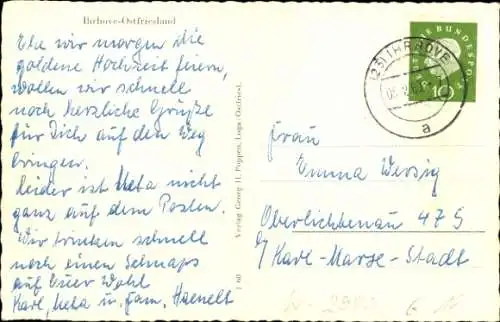 Ihrhove-Ostfriesland
Ehe wir morgen die
goldene Hochzeit feiern,
wollen wir schnell
noch herzliche Grüße
für Dich auf den Weg
bringen.
Leider ist Meta nicht
ganz auf dem Posten.
Wir trinken schnell
noch einen Schnaps
auf Euer Wohl
Karl, Meta u. fam. Haenelt
Verlag Georg H. Poppen, Loga-Ostfriesl.
DEUTSCHE BUNDESPOST
10
(23) IHRHOVE
a
Frau
Emma Wersig
Oberlichtenau 475
b/ Karl-Marx-Stadt